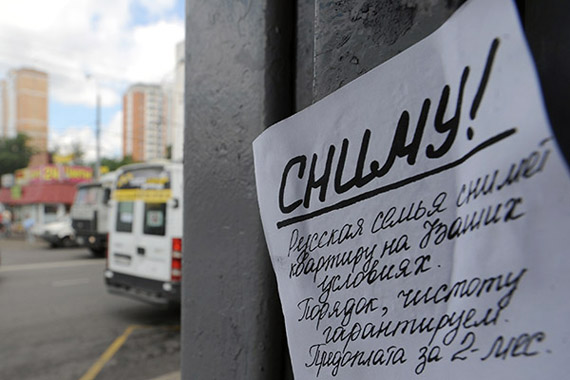 СНИМУ!
Русская семья снимет
квартиру на Ваших
условиях.
Порядок, чистоту
гарантируем.
Предоплата за 2-мес.